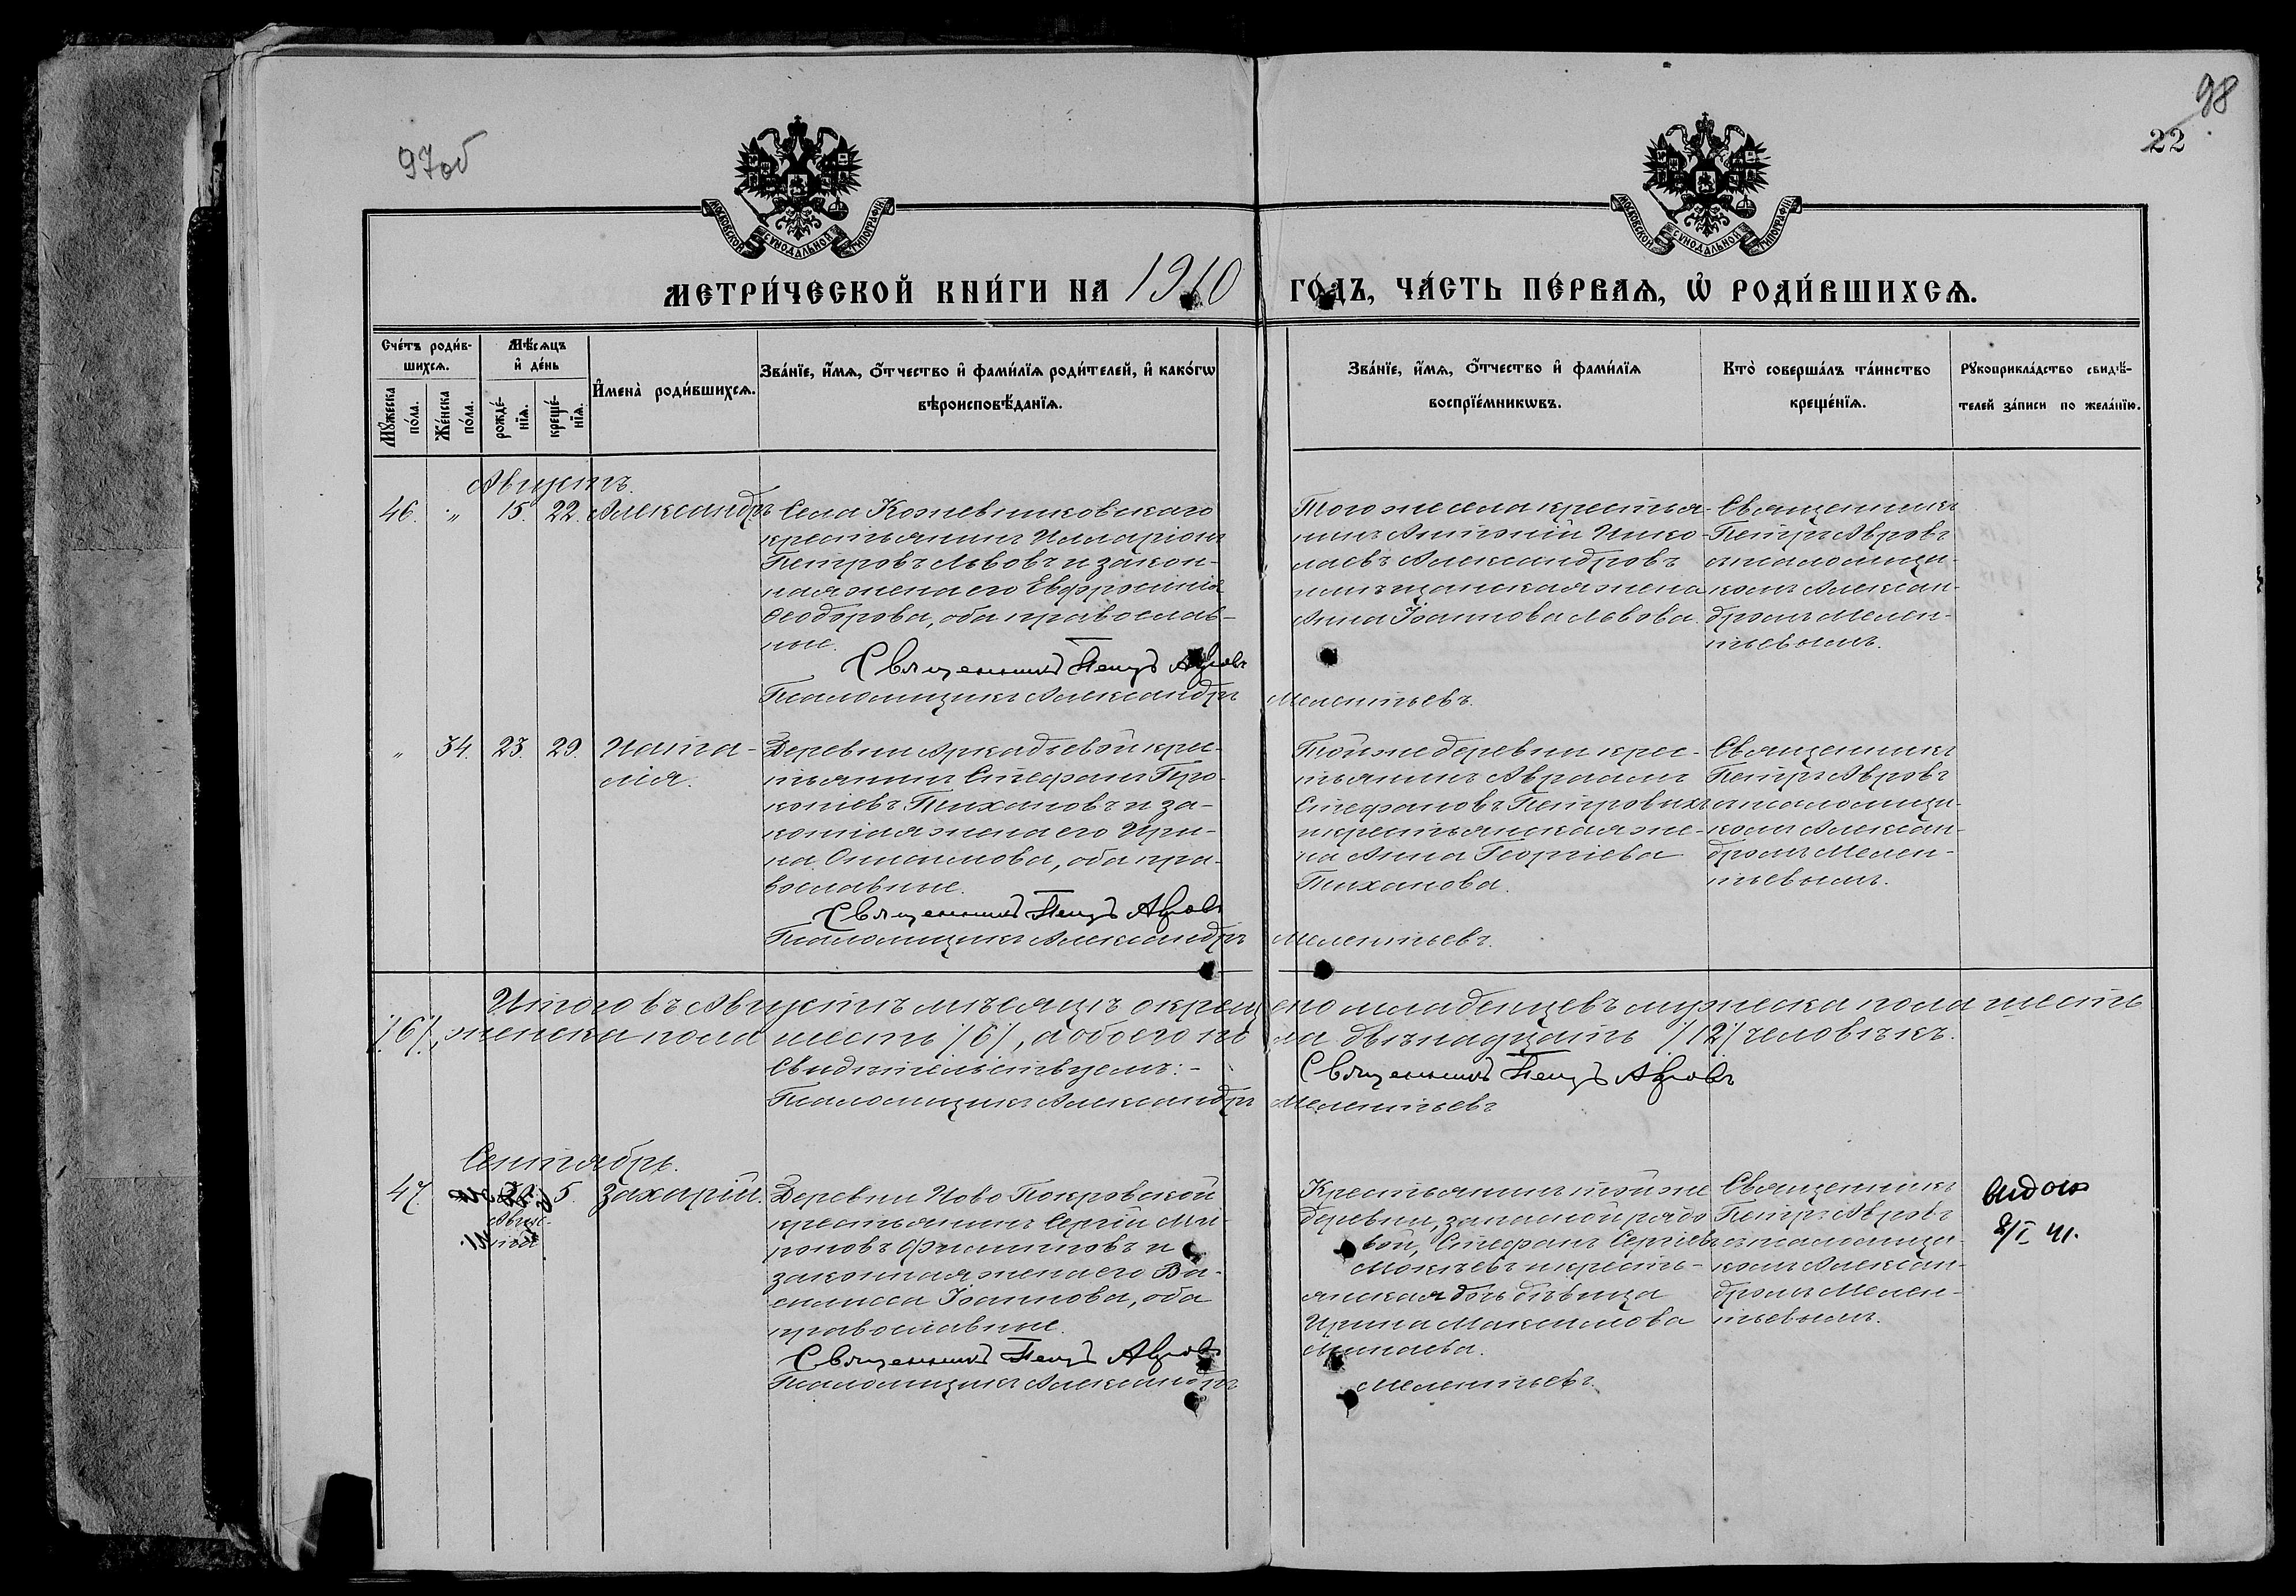 97об
98
22
МОСКОВСКОЙ СѴНОДАЛЬНОЙ ТИПОГРАФІИ
МОСКОВСКОЙ СѴНОДАЛЬНОЙ ТИПОГРАФІИ
МЕТРИ́ЧЕСКОЙ КНИ́ГИ НА 1910 ГО́ДЪ, ЧА́СТЬ ПЕ́РВАѦ, Ѡ҆ РОДИ́ВШИХСѦ.
Сче́тъ роди́в-
шихсѧ.
Мꙋ́жеска по́ла.
Же́нска по́ла.
Мѣ́сѧцъ
и҆ де́нь
рожде́-
нїѧ.
креще́-
нїѧ.
И҆мена̀ роди́вшихсѧ.
Зва́нїе, и҆́мѧ, ѻ҆́тчество и҆ фами́лїѧ роди́телей, и҆ како́гѡ
вѣроисповѣ́данїѧ.
Зва́нїе, и҆́мѧ, ѻ҆́тчество и҆ фами́лїѧ
воспрїе́мникѡвъ.
Кто̀ соверша́лъ та́инство
креще́нїѧ.
Рꙋкоприкла́дство свидѣ́-
телей за́писи по жела́нїю.
Августъ.
46. „ 15. 22. Александръ
Села Кожевниковскаго
крестьянинъ Илларіонъ
Петровъ Львовъ и закон-
ная жена его Евфросинія
Ѳеодорова, оба православ-
ные.
Священникъ Петръ Авровъ
Псаломщикъ Александръ Мелентьевъ.
Того же села крестья-
нинъ Антоній Нико-
лаевъ Александровъ
и мѣщанская жена
Анна Іоаннова Львова.
Священникъ
Петръ Авровъ
съ псаломщи-
комъ Алексан-
дромъ Мелен-
тьевымъ.
„ 34. 23. 29. Ната-
лія.
Деревни Аркадьевой крес-
тьянинъ Стефанъ Про-
копіевъ Тихановъ и за-
конная жена его Ири-
на Онисимова, оба пра-
вославные.
Священникъ Петръ Авровъ
Псаломщикъ Александръ Мелентьевъ.
Той же деревни крес-
тьянинъ Авраамъ
Стефановъ Петровыхъ
и крестьянская же-
на Анна Георгіева
Тиханова.
Священникъ
Петръ Авровъ
съ псаломщи-
комъ Алексан-
дромъ Мелен-
тьевымъ.
Итого въ Августѣ мѣсяцѣ окрещено младенцевъ мужеска пола шесть
/6/, женска пола шесть /6/, а обоего пола двѣнадцать /12/ человѣкъ.
Свидѣтельствуемъ:-
Священникъ Петръ Авровъ
Псаломщикъ Александръ Мелентьевъ
Сентябрь.
47. 5. Захарій.
Августа
Деревни Ново Покровской
крестьянинъ Сергій Ми-
роновъ Филипповъ и
законная жена его Ва-
силисса Іоаннова, оба
православные.
Священникъ Петръ Авровъ
Псаломщикъ Александръ Мелентьевъ.
Крестьянинъ той же
деревни, запасной рядо
вой, Стефанъ Сергіевъ
Мокѣевъ и кресть-
янская дочь дѣвица
Ирина Максимова
Минаева.
Священникъ
Петръ Авровъ
съ псаломщи-
комъ Алексан-
дромъ Мелен-
тьевымъ.
8/I 41.